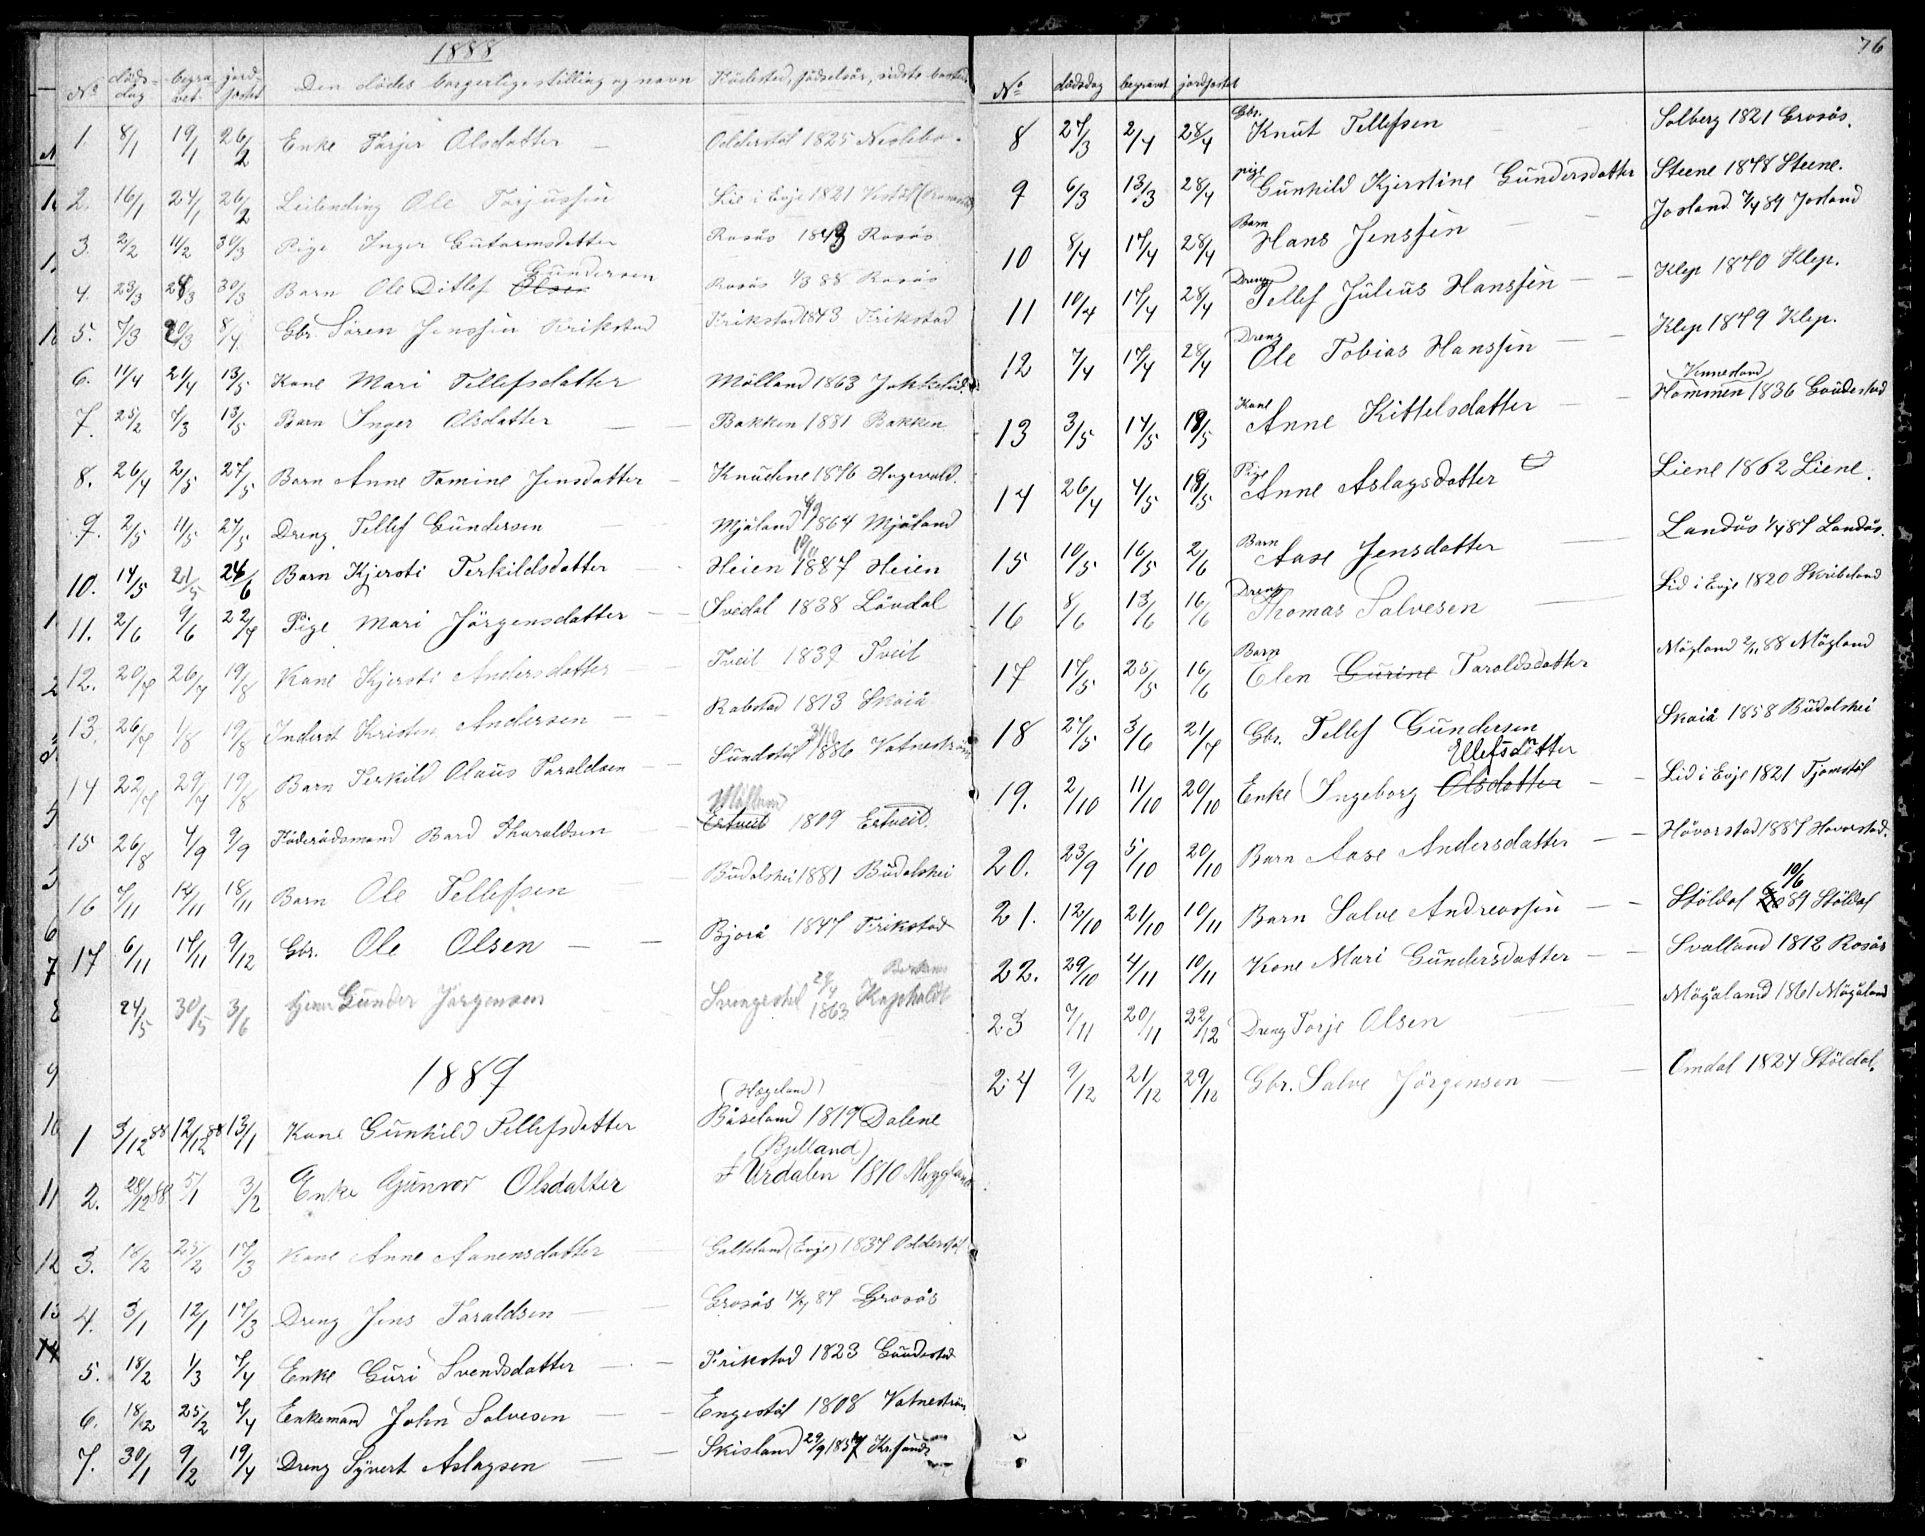 1888
No döds- dag begra- vet jord- fæstet Den dödes borgerlige stilling og navn Födested, födselsår, sidste bosted
1. 8/1 19/1 26/2 Enke Torjer Olsdatter Odderstöl 1825
2. 16/1 24/1 26/2 Leilending Ole Torjussen Lid i Evje 1821
3. 2/2 11/2 30/3 Pige Inger Gutormsdatter Rosås 1843 Rosås
Gundersen
4. 23/3 28/3 30/3 Barn Ole Ditlef Olsen Rosås 1/3 88 Rosås
5. 7/3 20/3 8/4 Gbr. Sören Jenssen Frikstad Frikstad 1843 Frikstad
6. 11/4 21/4 13/5 Kone Mari Tellefsdatter Mölland 1863
7. 25/2 4/3 13/5 Barn Inger Olsdatter Bakken 1881 Bakken
8. 26/4 2/5 27/5 Barn Anne Tomine Jensdatter 1876
9. 2/5 11/5 27/5 Dreng Tellef Gundersen Mjåland 6/9 1864 Mjåland
10. 14/5 21/5 24/6 Barn Kjersti Terkildsdatter Heien 19/11 1887 Heien
11. 2/6 9/6 22/7 Pige Mari Jörgensdatter Ivedal 1838 Lövdal
12. 20/7 26/7 19/8 Kone Kjersti Andersdatter Tveit 1839 Tveit
13. 26/7 1/8 19/8 Inderst Kristen Andersen Rabstad 1813 Skaiå
14 22/7 29/7 19/8 Barn Terkild Olaus Taraldsen Sundstöl 1886 Vatneström
Mölland
15 26/8 4/9 9/9 Föderådsmand Bård Tharaldsen Ertveit 1809 Ertveit
16 4/11 12/11 18/11 Barn Ole Tellefsen Budalshei 1881 Budalshei
17 6/11 17/11 9/12 Gbr. Ole Olsen Bjorå 1847 Frikstad
24/5 30/5 3/6 Gunder Jörgensen 29/4 1863
1889
(Hægeland)
1 3/12 88 12/12 88 13/1 Kone Gunhild Tellefsdatter Båseland 1819 Dalene
(Bjelland)
2. 28/12 88 5/1 3/2 Enke Gunvor Olsdatter Urdalen 1810
3. 18/2 25/2 17/3 Kone Anne Aanensdatter Galteland (Evje) 1837 Odderstöl
4. 3/1 12/1 17/3 Dreng Jens Taraldsen Grosås 17/7 87 Grosås
5. 18/2 1/3 7/4 Enke Guri Svendsdatter Frikstad 1823 Gaudestad
6. 18/2 25/2 7/4 Enkemand John Salvesen Engestöl 1808 Vatneström
7. 30/1 9/2 19/4 Dreng Syvert Aslagsen Skisland 29/9 1857 Kr.sand
76
No dödsdag begravet jordfæstet
8 27/3 2/4 28/4 Gbr. Knut Tellefsen Solberg 1821 Grosås.
9 6/3 13/3 28/4 pige Gunhild Kjerstine Gundersdatter Steene 1878 Steene.
10 8/4 17/4 28/4 Barn Hans Jenssen Josland 7/4 89 Josland
11 10/4 17/4 28/4 Dreng Tellef Julius Hanssen Klep 1870 Klep.
12 7/4 17/4 28/4 Dreng Ole Tobias Hanssen Klep 1879 Klep.
Vennesland
13 3/5 14/5 19/5 Kone Anne Kittelsdatter Hommen 1836 Gaudestad
14 26/4 4/5 19/5 Pige Anne Aslagsdatter Liene 1862 Liene.
15 10/5 16/5 2/6 Barn Aase Jensdatter Landås 1/4 87 Landås.
16 8/6 13/6 16/6 Dreng Thomas Salvesen Lid i Evje 1820 Skribeland
17 17/5 25/5 16/6 Barn Elen Gurine Taroldsdatter Mögland 2/11 88 Mögland
18 27/5 3/6 21/7 Gbr. Tellef Gundersen Skaiå 1858 Budalshei
Ellefsdatter
19. 2/10 11/10 20/10 Enke Ingeborg Olsdatter Lid i Evje 1821 Tjomstöl
20. 23/9 5/10 20/10 Barn Aase Andersdatter Hövorstad 1887 Hovorstad.
10/6
21. 12/10 21/10 10/11 Barn Salve Andreassen Stöldal 89 Stöldal
22. 29/10 4/11 10/11 Kone Mari Gundersdatter Svalland 1812 Rosås
23 7/11 20/11 22/12 Dreng Torje Olsen Mögåland 1861 Mögåland
24 9/12 21/12 29/12 Gbr. Salve Jörgensen Omdal 1824 Stöldal.